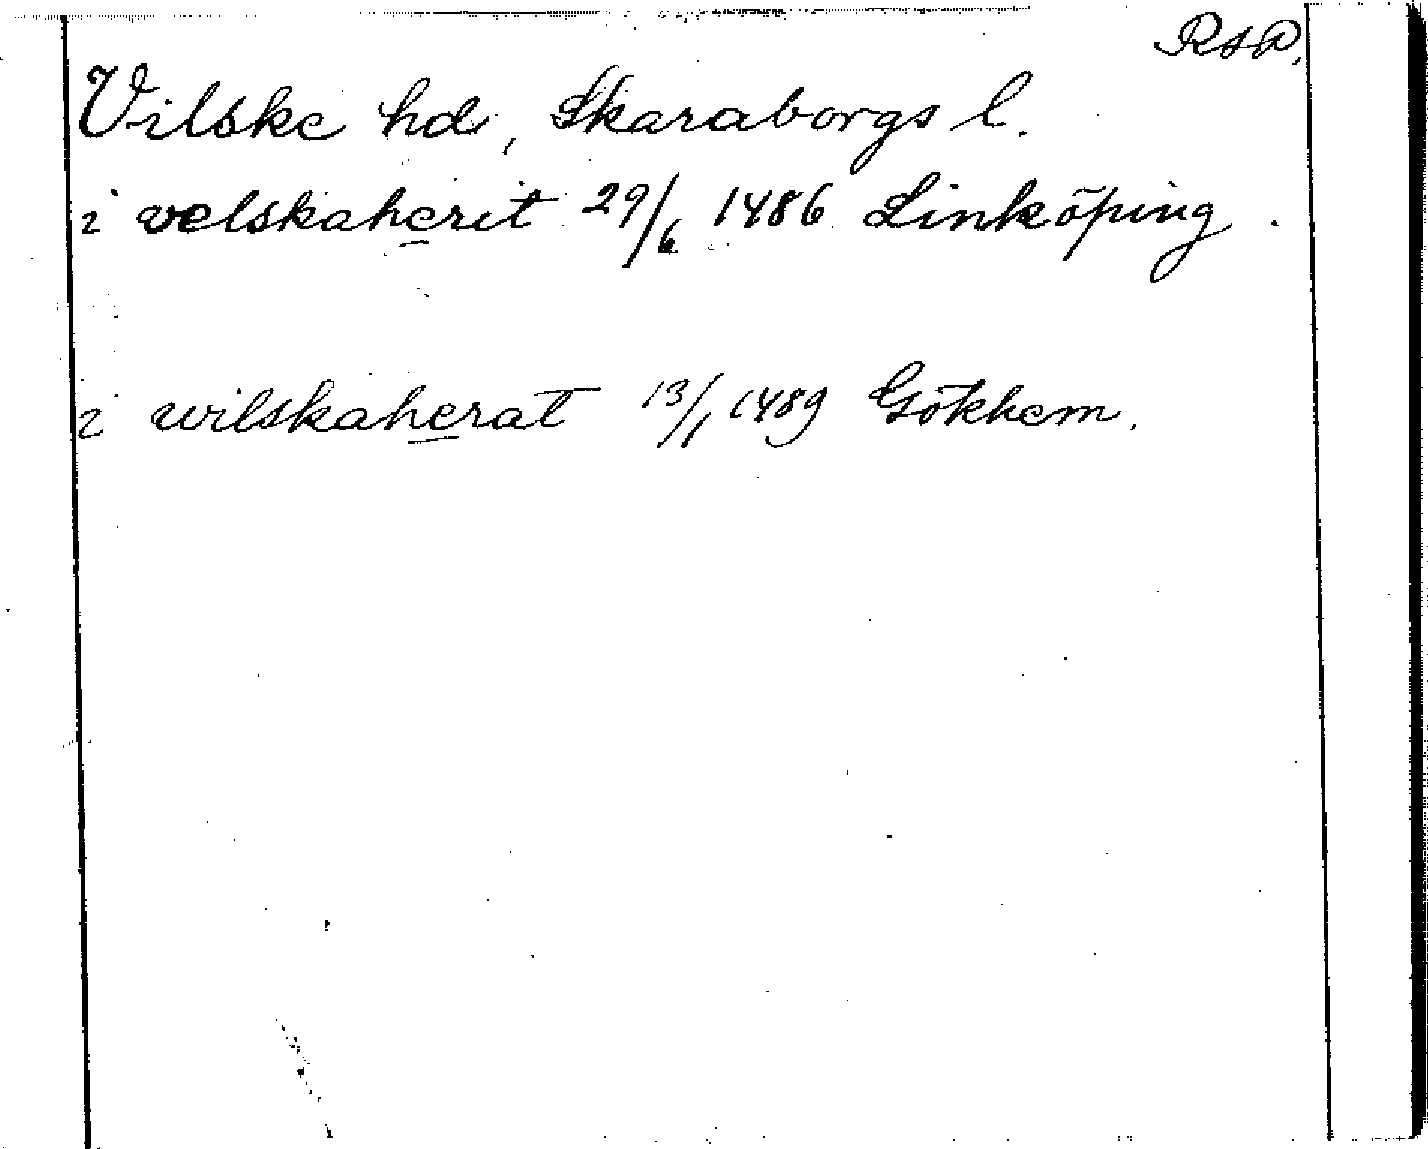 RAP.
Vilske hd, Skaraborgs l.
i velskaherit 29/6 1486 Linköping.
i wilskaherat 13/1 1489 Gökhem.